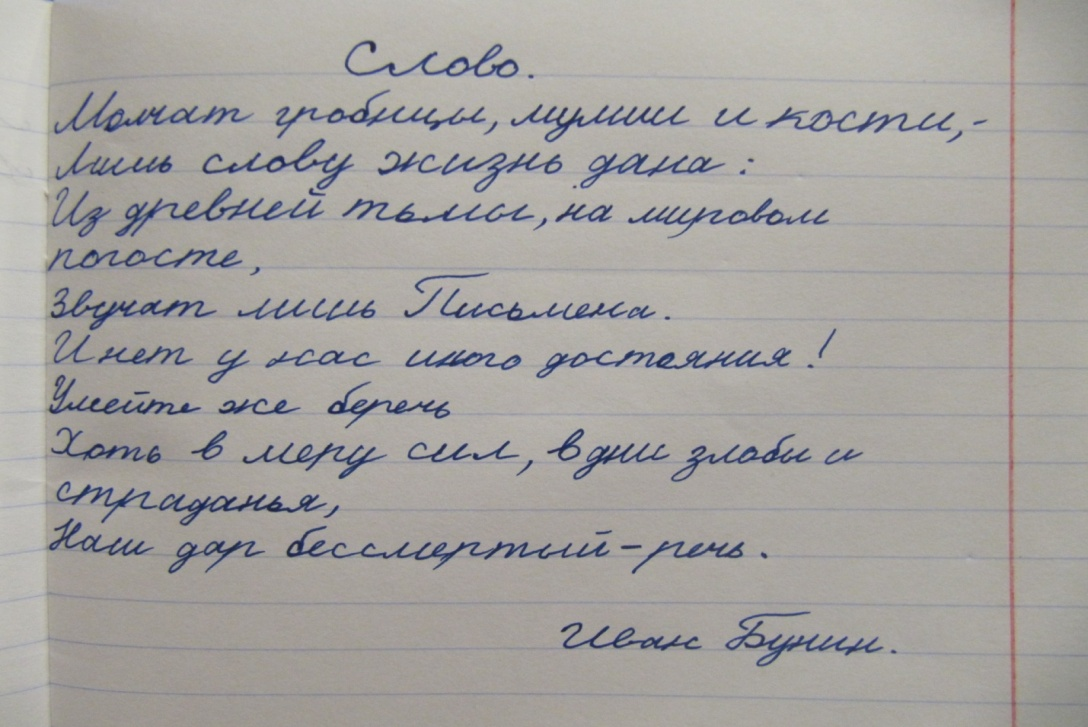 Слово.
Молчат гробницы, мумии и кости,-
Лишь слову жизнь дана:
Из древней тьмы, на мировом
погосте,
Звучат лишь Письмена.
И нет у нас иного достояния!
Умейте же беречь
Хоть в меру сил, в дни злобы и
страданья,
Наш дар бессмертный-речь.
Иван Бунин.